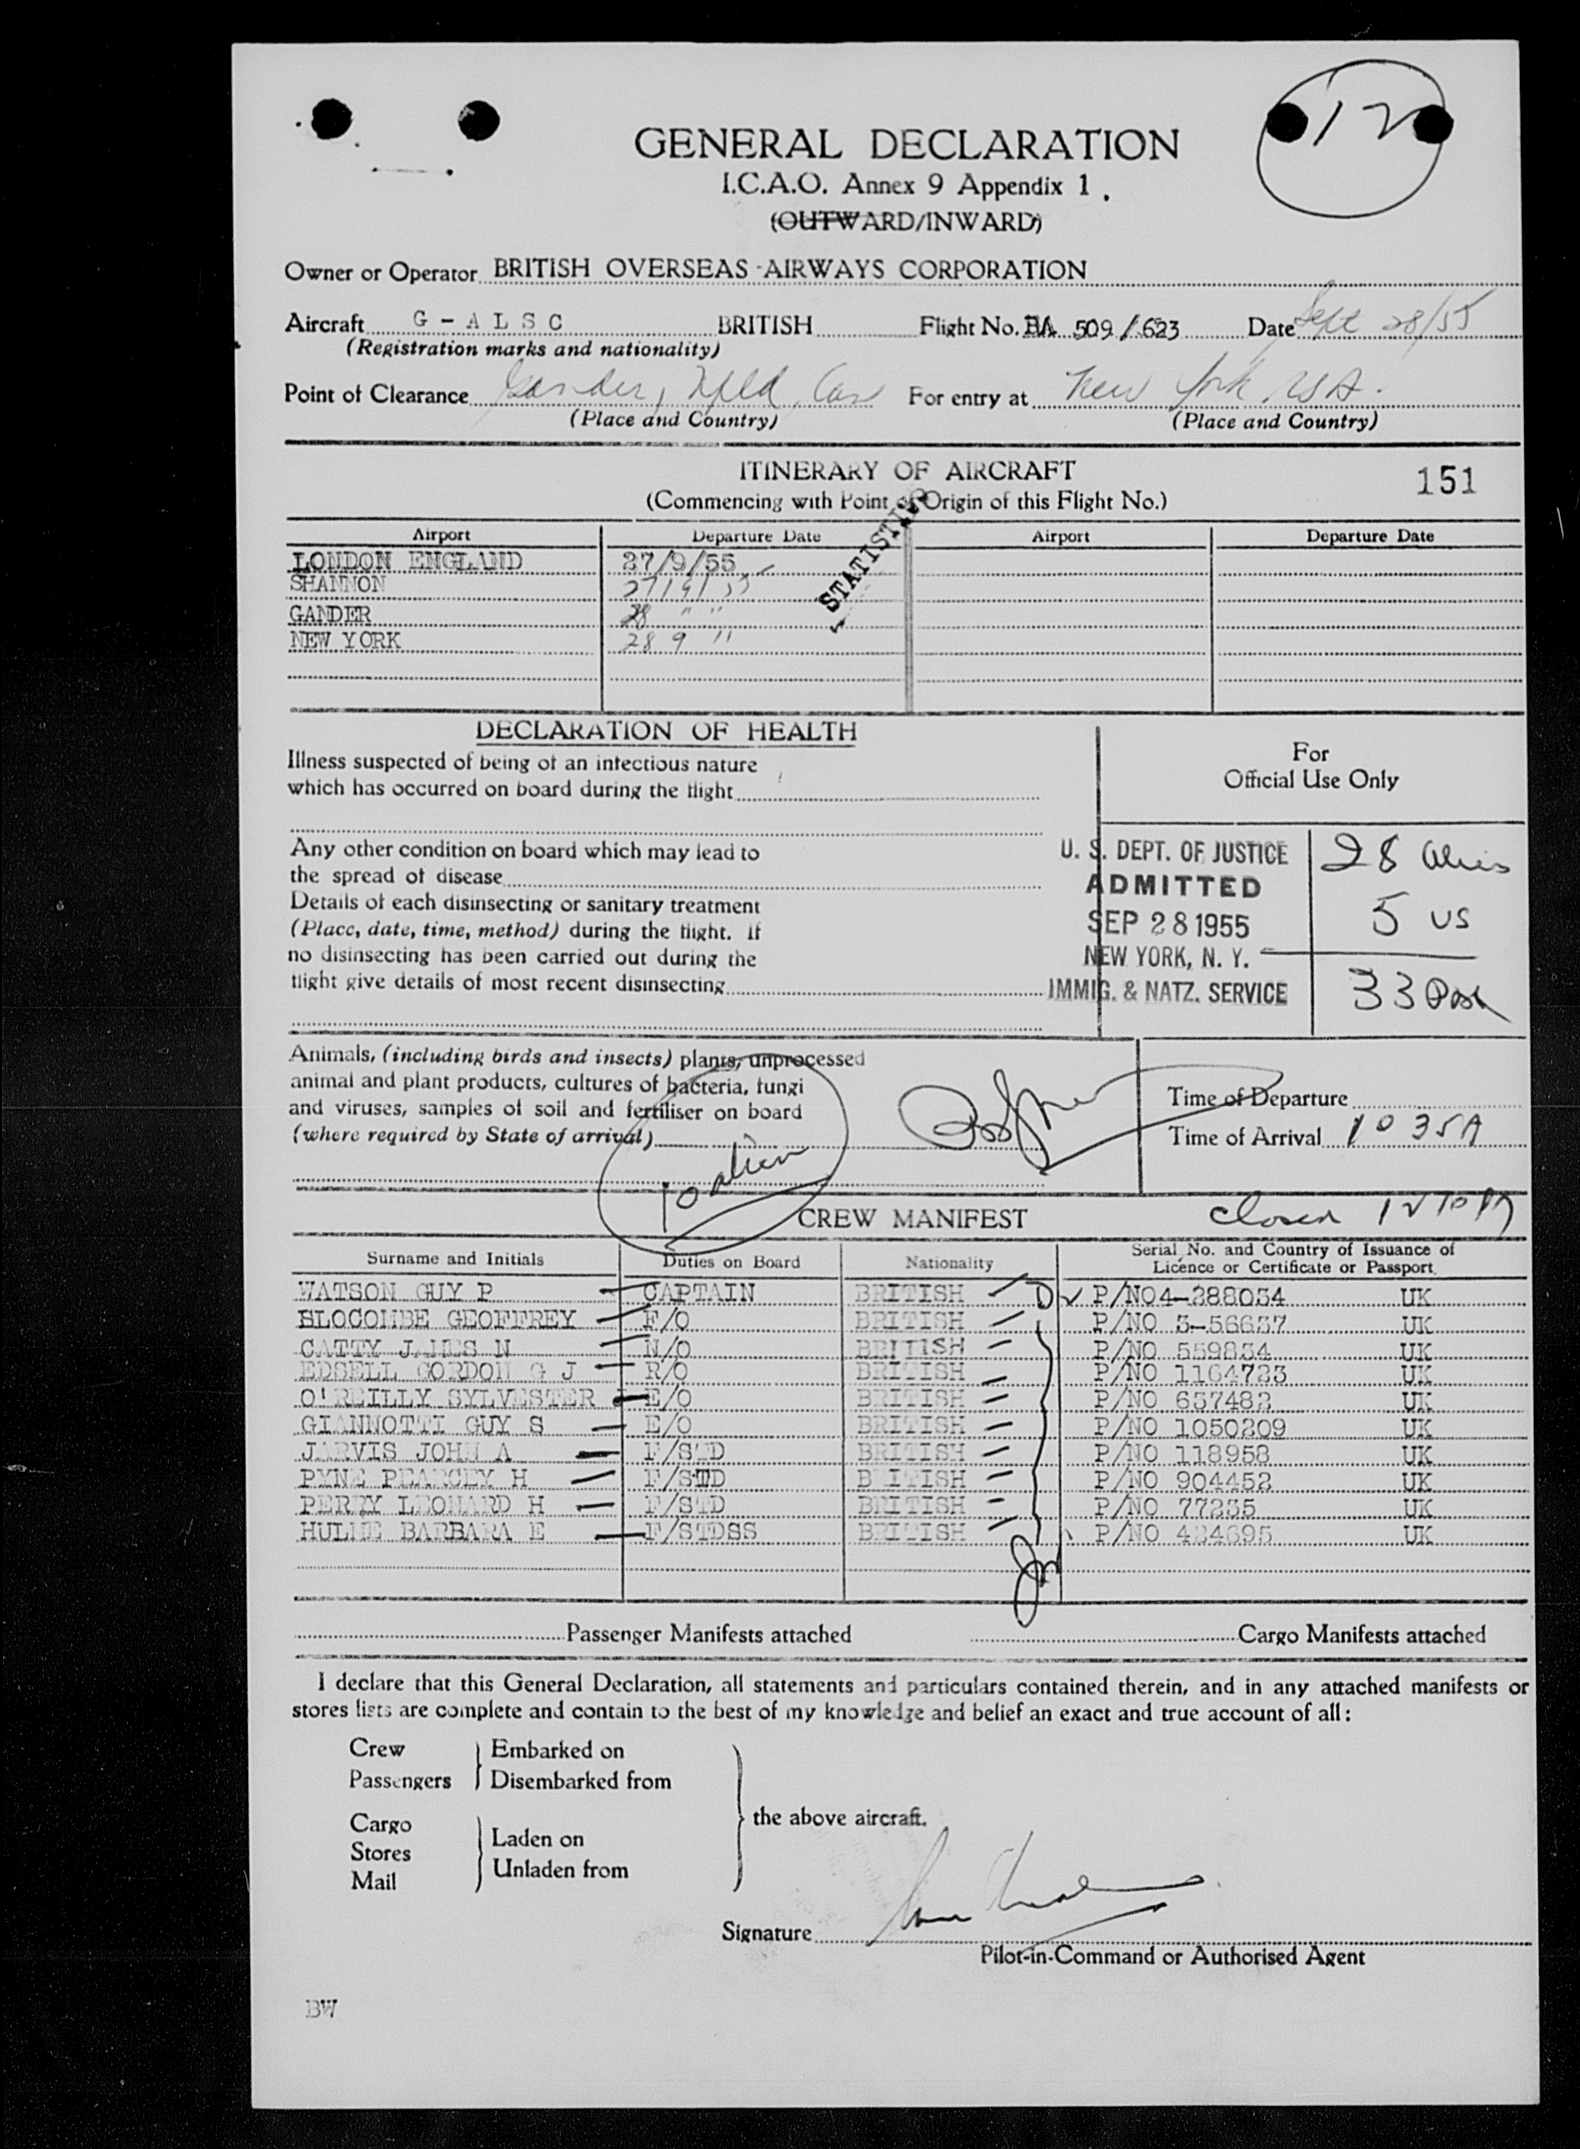 12
GENERAL DECLARATION
I.C.A.O. Annex 9 Appendix 1
(OUTWARD/INWARD)
Owner or Operator BRITISH OVERSEAS AIRWAYS CORPORATION
Aircraft G - A L S C BRITISH Flight No. BA 509 / 623 Date Sept 28/55
(Registration marks and nationality)
Point of Clearance Gander, Nfld, Can For entry at New York, USA.
(Place and Country) (Place and Country)
ITINERARY OF AIRCRAFT 151
(Commencing with Point of Origin of this Flight No.)
Airport Departure Date Airport Departure Date
LONDON ENGLAND 27/9/55
SHANNON 27/9/55
GANDER 28 " "
NEW YORK 28 9 "
DECLARATION OF HEALTH
Illness suspected of being of an infectious nature
which has occurred on board during the flight
For
Official Use Only
Any other condition on board which may lead to
the spread of disease
Details of each disinsecting or sanitary treatment
(Place, date, time, method) during the flight. If
no disinsecting has been carried out during the
flight give details of most recent disinsecting
U. S. DEPT. OF JUSTICE
ADMITTED
SEP 28 1955
NEW YORK, N. Y.
IMMIG. & NATZ. SERVICE
28 aliens
5 US
33 Pass
Animals, (including birds and insects) plants, unprocessed
animal and plant products, cultures of bacteria, fungi
and viruses, samples of soil and fertiliser on board
(where required by State of arrival)
10 alien
Time of Departure
Time of Arrival 10 35A
CREW MANIFEST closed 12 10 PM
Surname and Initials Duties on Board Nationality Serial No. and Country of Issuance of
Licence or Certificate or Passport
WATSON GUY P CAPTAIN BRITISH P/NO4-288054 UK
SLOCOMBE GEOFFREY F/O BRITISH P/NO 3-56637 UK
CATTY JAMES N N/O BRITISH P/NO 559834 UK
EDSELL GORDON G J R/O BRITISH P/NO 1164723 UK
O'REILLY SYLVESTER E/O BRITISH P/NO 657482 UK
GIANNOTTI GUY S E/O BRITISH P/NO 1050209 UK
JARVIS JOHN A F/STD BRITISH P/NO 118958 UK
PYNE PEARCEY H F/STD BRITISH P/NO 904452 UK
PERRY LEONARD H F/STD BRITISH P/NO 77235 UK
HULME BARBARA E F/STDSS BRITISH P/NO 434695 UK
Passenger Manifests attached Cargo Manifests attached
I declare that this General Declaration, all statements and particulars contained therein, and in any attached manifests or
stores lists are complete and contain to the best of my knowledge and belief an exact and true account of all:
Crew Embarked on
Passengers Disembarked from
the above aircraft.
Cargo
Stores Laden on
Mail Unladen from
Signature
Pilot-in-Command or Authorised Agent
BW